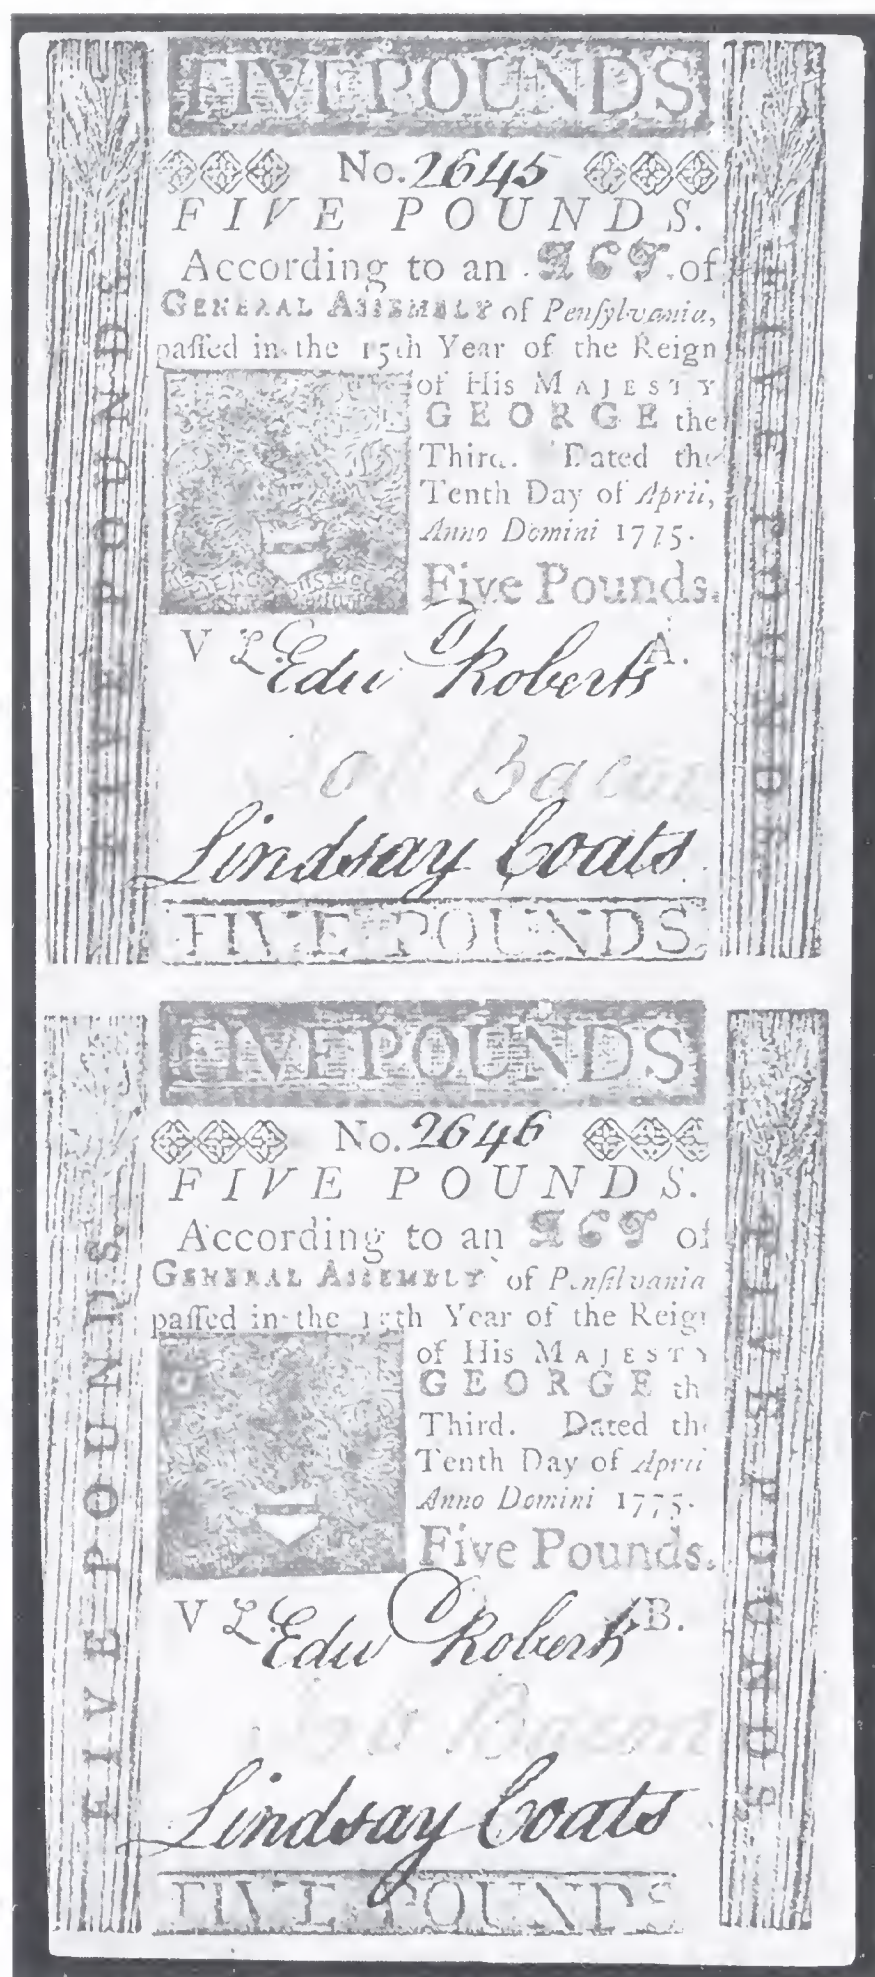 FIVE POUNDS
No. 2645
FIVE POUNDS.
According to an ACT of
GENERAL ASSEMBLY of Penſylvania,
paſſed in the 15th Year of the Reign
of His MAJESTY
GEORGE the
Third. Dated the
Tenth Day of April,
Anno Domini 1775.
Five Pounds.
V L. A.
Edw Roberts
Bacon
Lindsay Coats
FIVE POUNDS
FIVE POUNDS
FIVE POUNDS
FIVE POUNDS
No. 2646
FIVE POUNDS.
According to an ACT of
GENERAL ASSEMBLY of Penſilvania
paſſed in the 15th Year of the Reign
of His MAJESTY
GEORGE th
Third. Dated the
Tenth Day of April
Anno Domini 1775.
Five Pounds.
V L. B.
Edw Roberts
Bacon
Lindsay Coats
FIVE POUNDS
FIVE POUNDS.
FIVE POUNDS